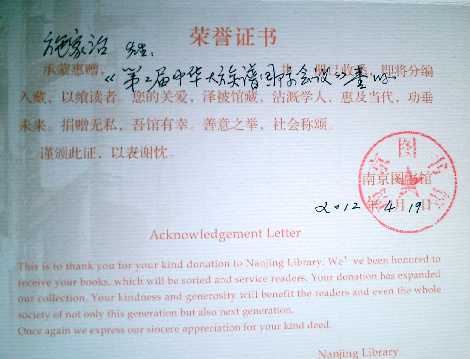 荣誉证书
施家治 先生:
承蒙惠赠,
《第二届中华大族谱国际会议》壹
已收悉,即将分编
入藏,以飨读者。您的关爱,泽被馆藏,沾溉学人,惠及当代,功垂
未来。捐赠无私,吾馆有幸。善意之举,社会称颂。
谨颁此证,以表谢忱。
南京图书馆
2012年4月19日
Acknowledgement Letter
This is to thank you for your kind donation to Nanjing Library. We've been honored to
receive your books, which will be sorted and service readers. Your donation has expanded
our collection. Your kindness and generosity will benefit the readers and even the whole
society of not only this generation but also next generation.
Once again we express our sincere appreciation for your kind deed.
Nanjing Library